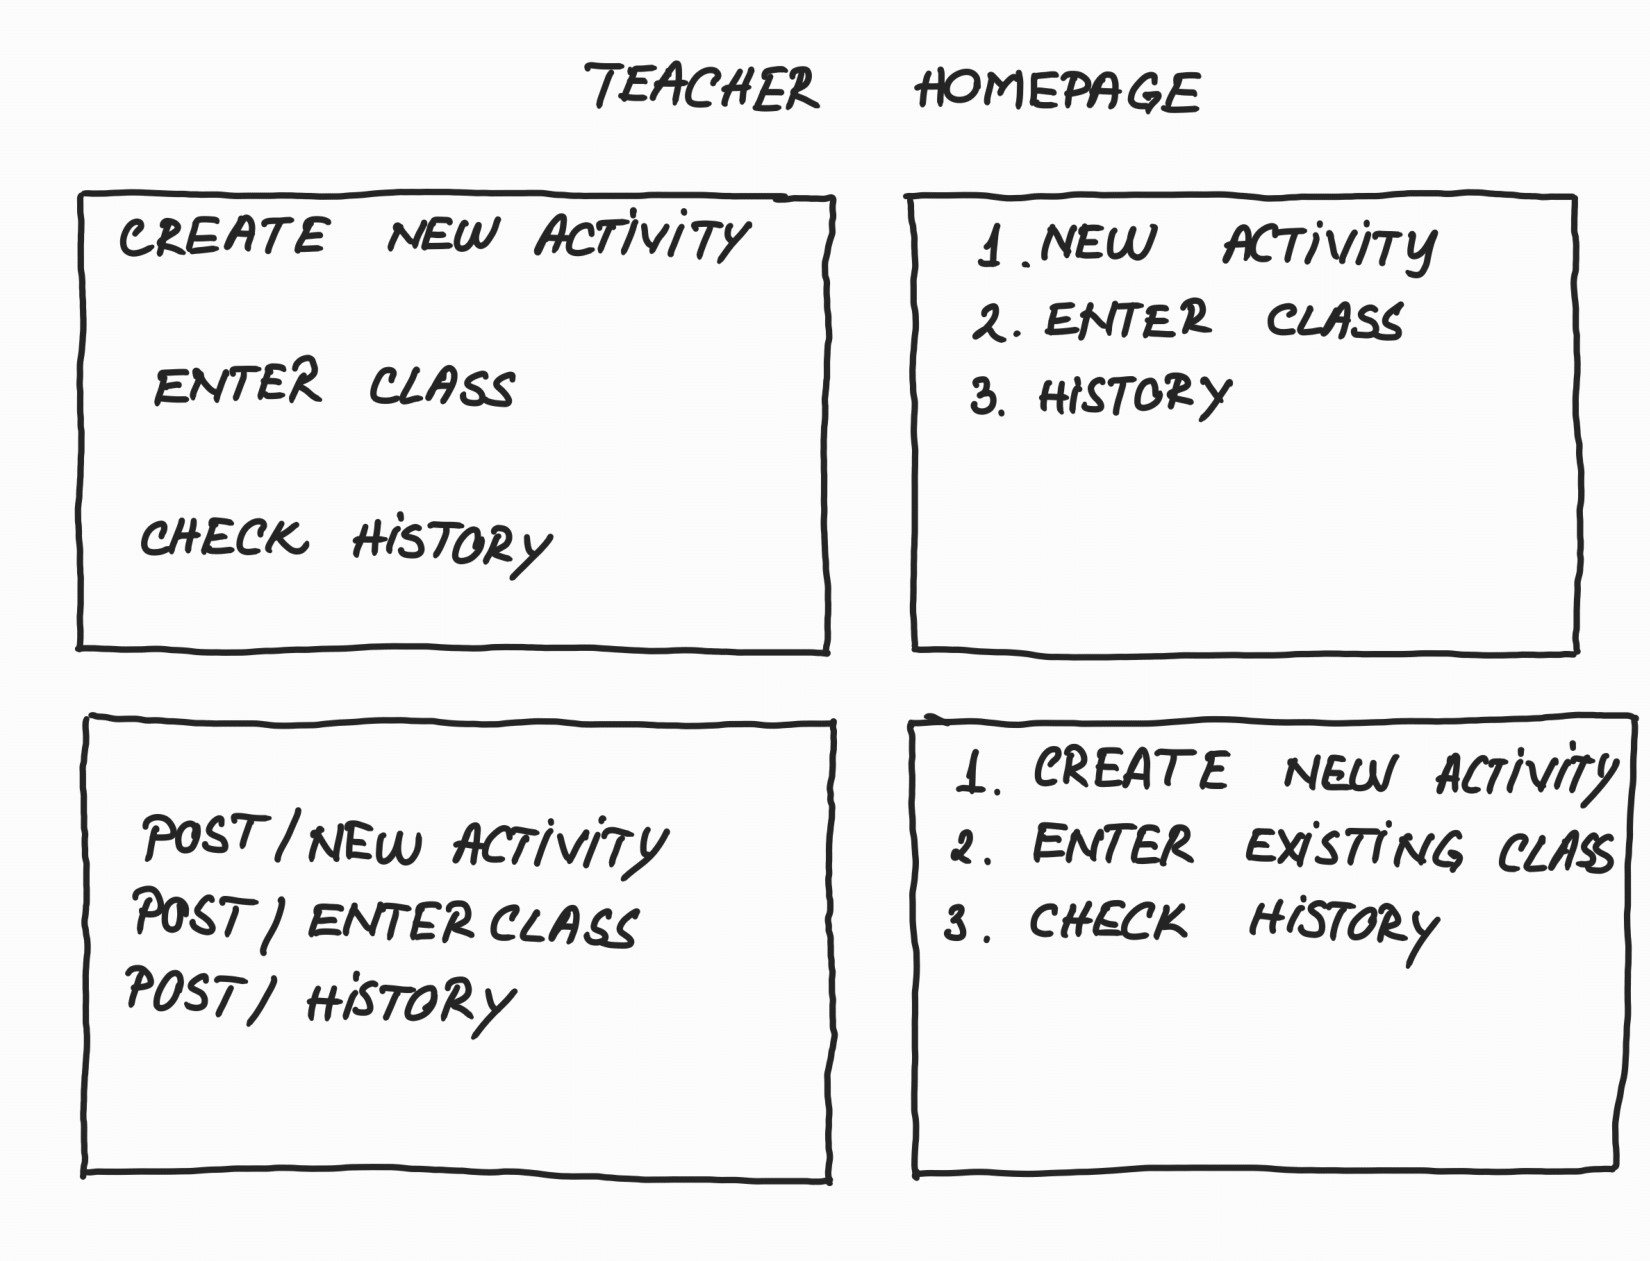 TEACHER HOMEPAGE
CREATE NEW ACTIVITY
ENTER CLASS
CHECK HISTORY
1. NEW ACTIVITY
2. ENTER CLASS
3. HISTORY
POST / NEW ACTIVITY
POST / ENTER CLASS
POST / HISTORY
1. CREATE NEW ACTIVITY
2. ENTER EXISTING CLASS
3. CHECK HISTORY